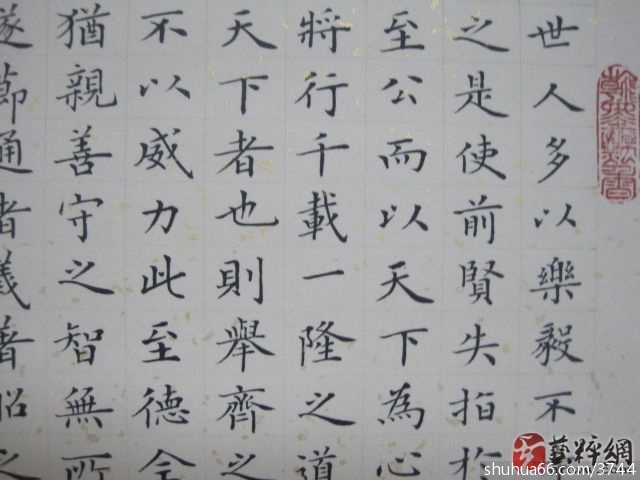 世人多以樂毅不
之是使前賢失指於
至公而以天下為心
將行千載一隆之道
天下者也則舉齊之
不以威力此至德全
猶親善守之智無所
遂節通者義著昭之
藝粹網
shuhua66.com/3744